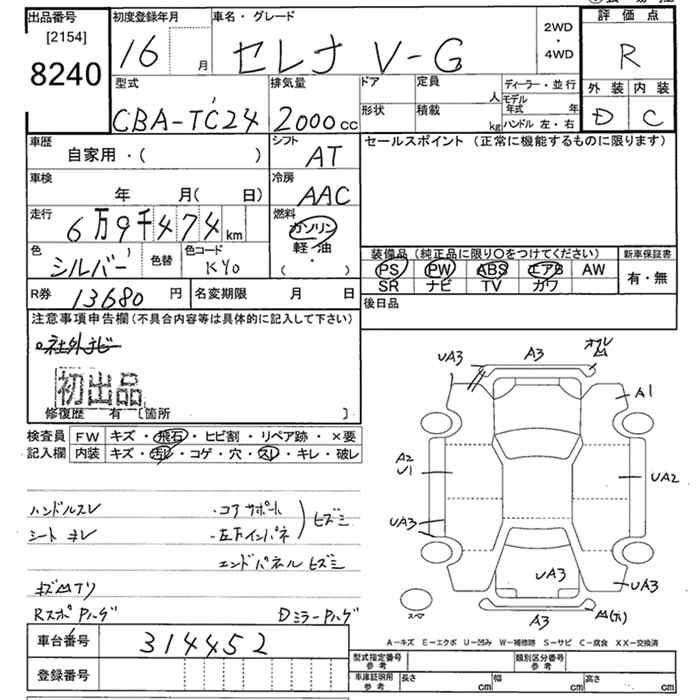 出品番号 初度登録年月 車名・グレード 評価点
[2154] 8240
16 月 セレナ V-G 2WD ・ 4WD R
型式 排気量 ドア 定員 人 ディーラー・並行 外装 内装
CBA-TC24 2000cc 形状 積載 kg モデル年式 年 D C
ハンドル 左・右
車歴 自家用・( ) シフト AT セールスポイント (正常に機能するものに限ります)
車検 年 月( 日) 冷房 AAC
走行 6万9千474km 燃料 ガソリン 軽・油 ・ ( )
色 シルバー 色替 色コード KY0 装備品 (純正品に限り○をつけてください) 新車保証書
PS PW ABS エアB AW 有・無
SR ナビ TV カワ
R券 13680円 名変期限 月 日 後日品
注意事項申告欄(不具合内容等は具体的に記入して下さい)
社外ナビ
初出品
修復歴 有 〔箇所 〕
検査員 FW キズ・飛石・ヒビ割・リペア跡・×要
記入欄 内装 キズ・汚レ・コゲ・穴・スレ・キレ・破レ
ハンドルスレ ・コアサポート
シート ・左下インパネ ヒズミ
エンドパネル ヒズミ
Dミラーハゲ
車台番号 314452
登録番号
UA3 A3 A1
A2 U1 UA2
UA3
UA3 UA3
A3
スペア
A-キズ E-エクボ U-凹み W-補修跡 S-サビ C-腐食 XX-交換済
型式指定番号 参考 類別区分番号 参考
車庫証明用 参考 長さ cm 幅 cm 高さ cm